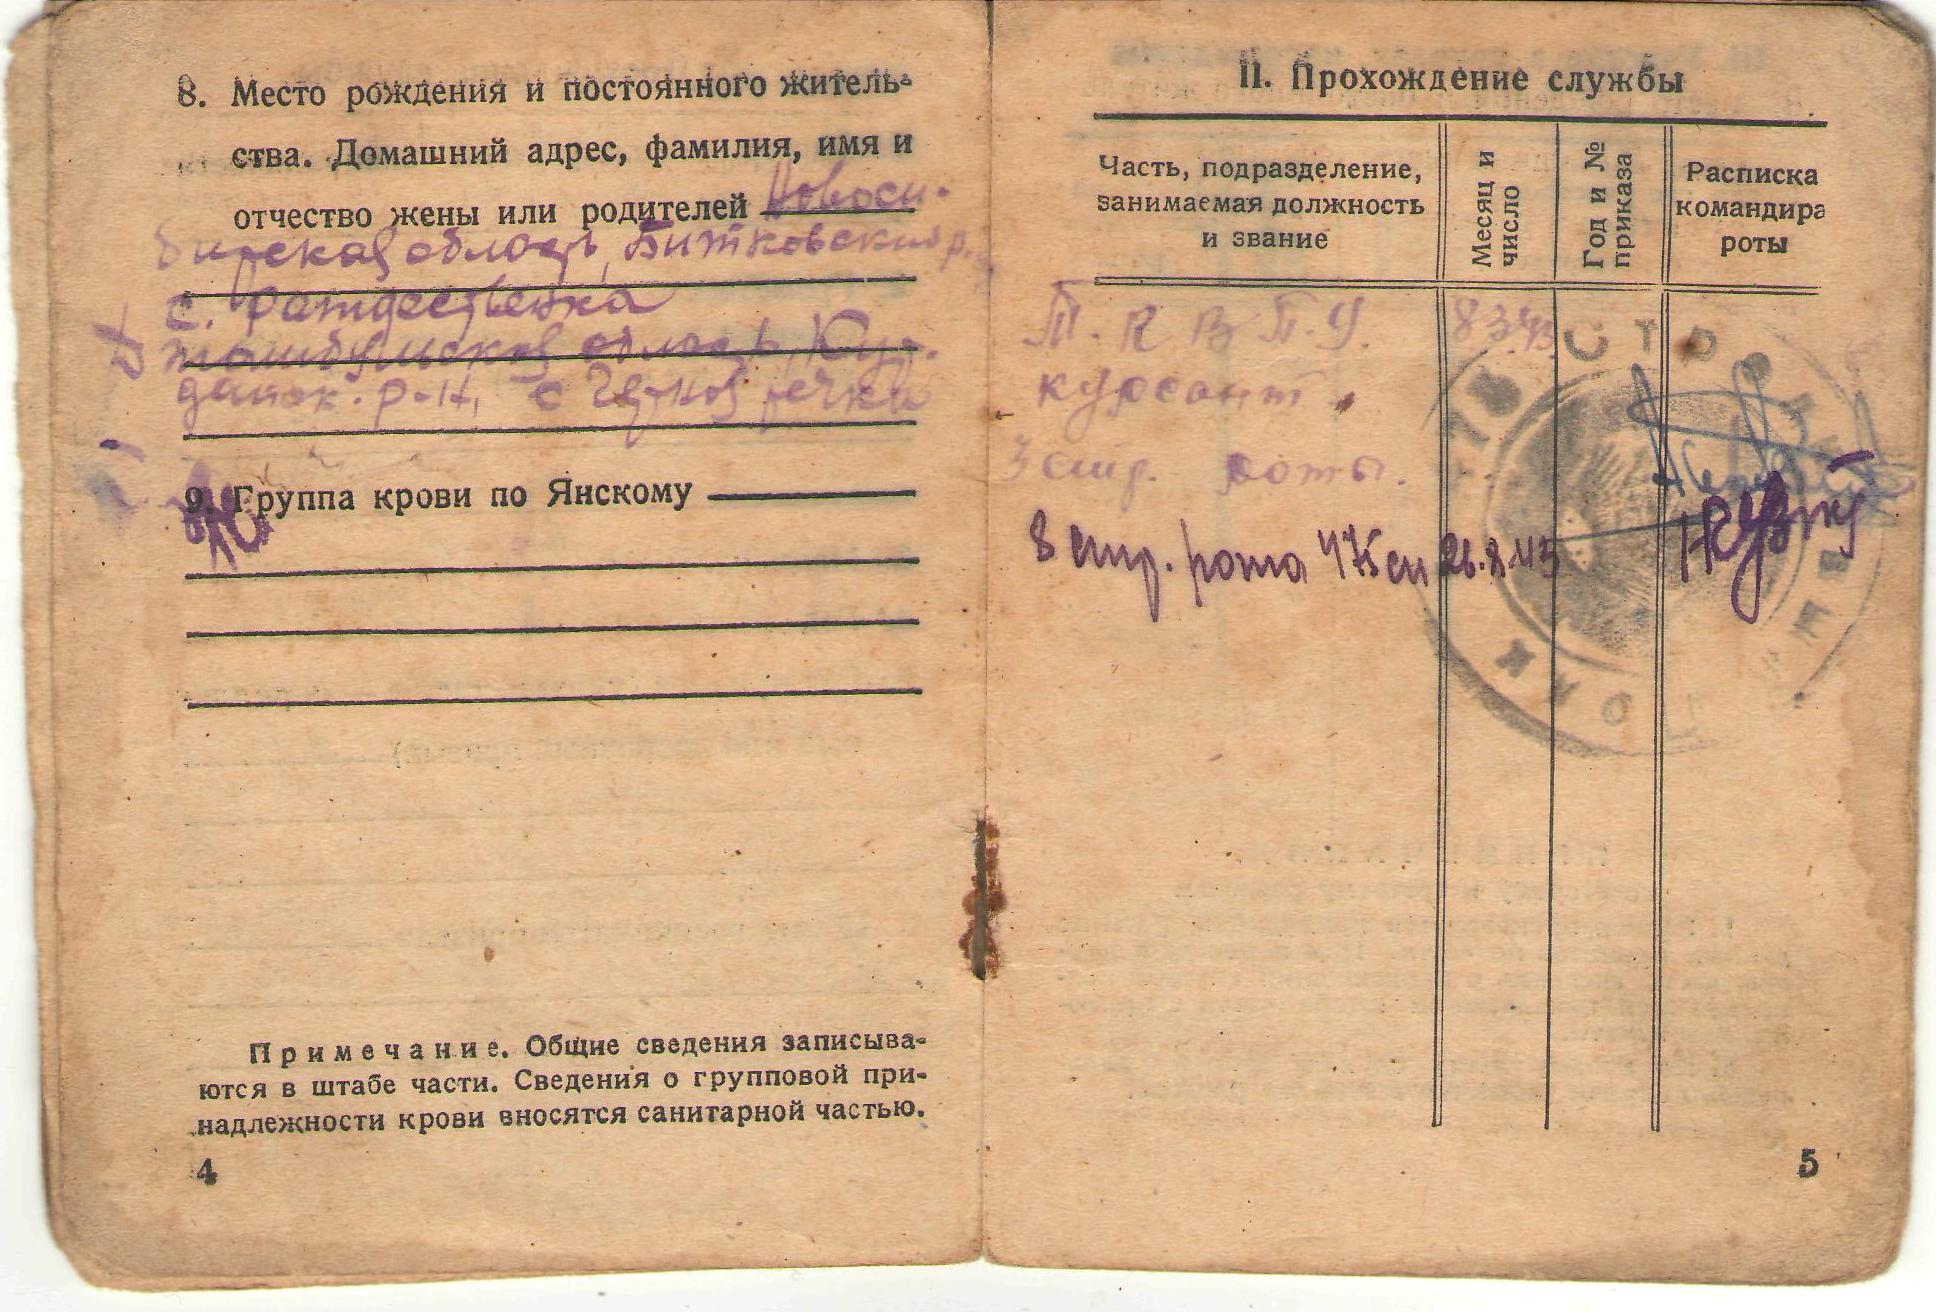 8. Место рождения и постоянного житель-
ства. Домашний адрес, фамилия, имя и
отчество жены или родителей Новоси-
бирская область, Битковский р.
с. Рождественка
область, Куп.
р-н, с речка
9. Группа крови по Янскому
Примечание. Общие сведения записыва-
ются в штабе части. Сведения о групповой при-
надлежности крови вносятся санитарной частью.
4
II. Прохождение службы
Часть, подразделение,
занимаемая должность
и звание
Месяц и
число
Год и №
приказа
Расписка
командира
роты
Т. К В П. У. 8 3.43
курсант
3 стр. роты.
8 стр. рота 475 сп 26.8.43
475 СТРЕЛКОВ
ПОЛК
5